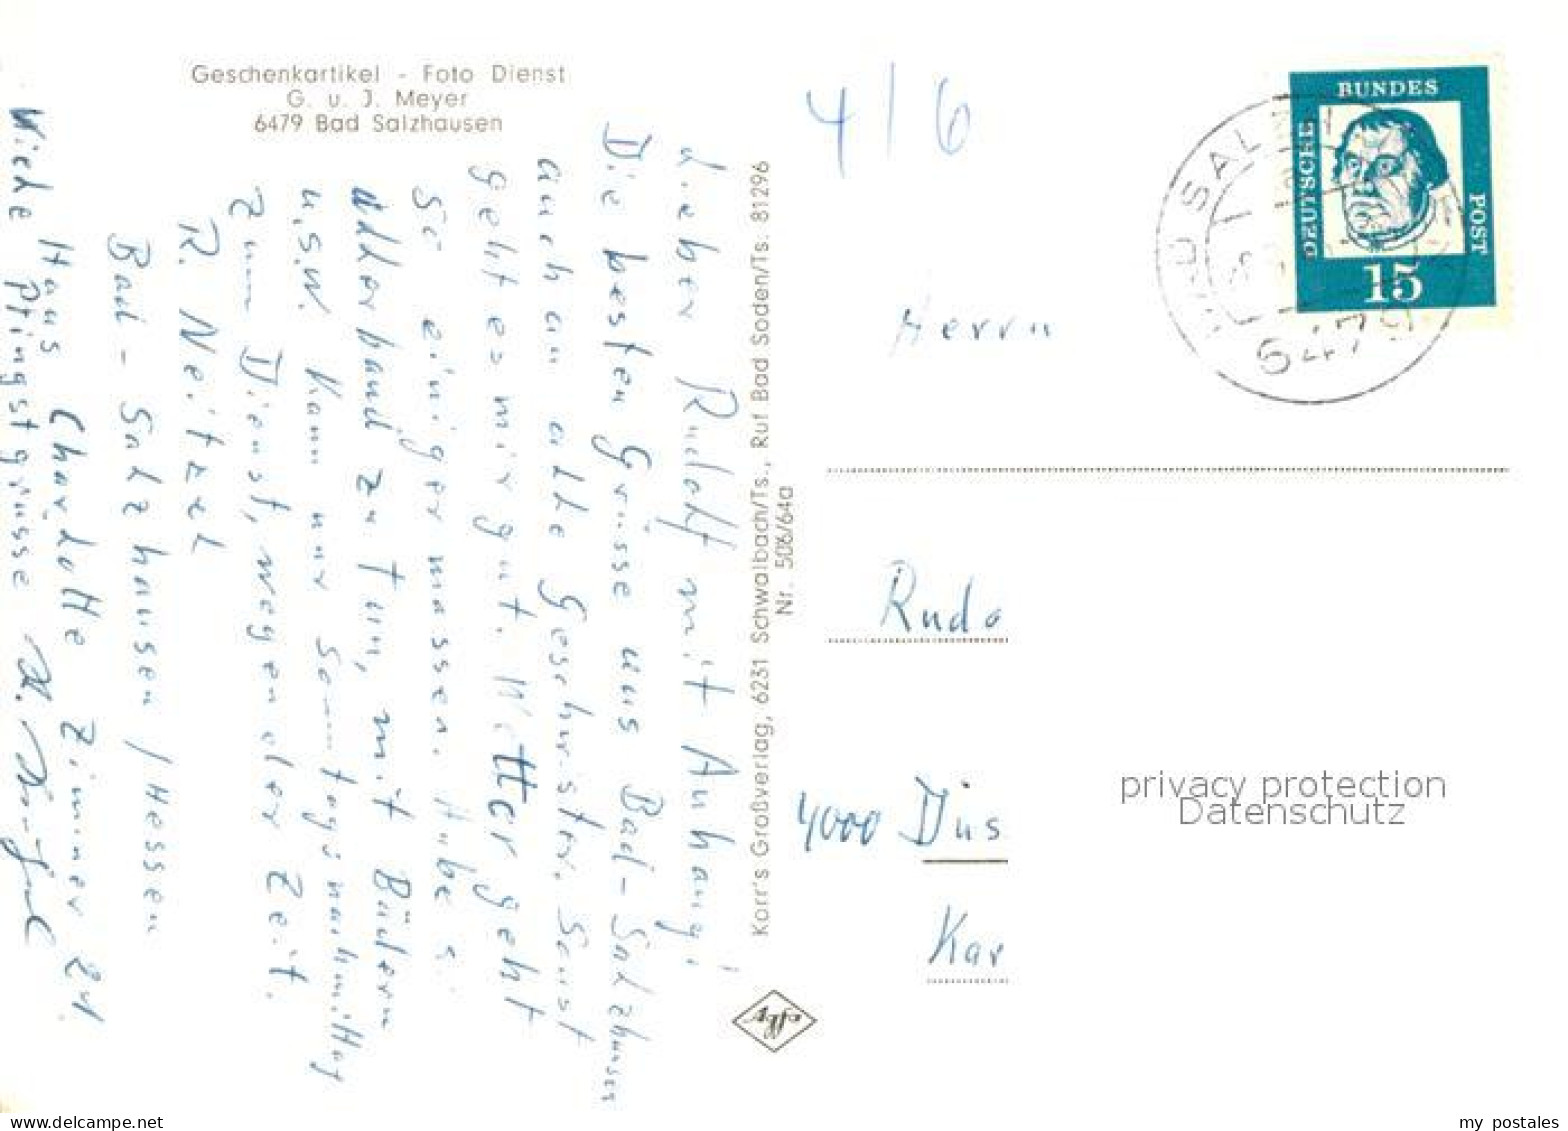 Geschenkartikel - Foto Dienst
G. u. J. Meyer
6479 Bad Salzhausen
Lieber Rudolf mit Anhang!
Die besten Grüsse aus Bad-Salzhausen
auch an alle Geschwister. Sonst
geht es mir gut. Wetter geht
so einigermassen. Habe s.
allerhand zu tun, mit Bädern
u.s.w. Kann nur Sonntagsnachmittag
zum Dienst, wegen der Zeit.
R. Neitzel
Bad-Salzhausen/Hessen
Haus Charlotte Zimmer 21
Viele Pfingstgrüsse
Korr's Großverlag, 6231 Schwalbach/Ts., Ruf Bad Soden/Ts. 81296
Nr. 506/64a
4/6
DEUTSCHE
BUNDES
POST
15
6479
Herrn
Rudo
4000 Düs
Kar
privacy protection
Datenschutz
www.delcampe.net
my postales